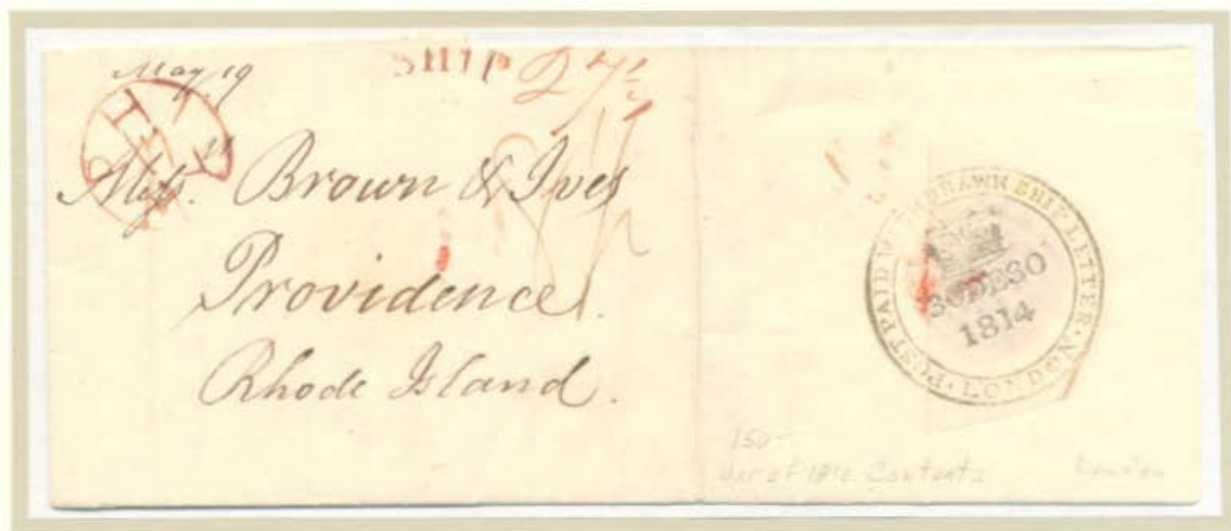 May 19
SHIP 27½
Mess.rs Brown & Ives
Providence
Rhode Island.
POST PAID WITHDRAWN SHIP LETTER · No · LONDON ·
30DE30
1814
150-
War of 1812 Contents
London